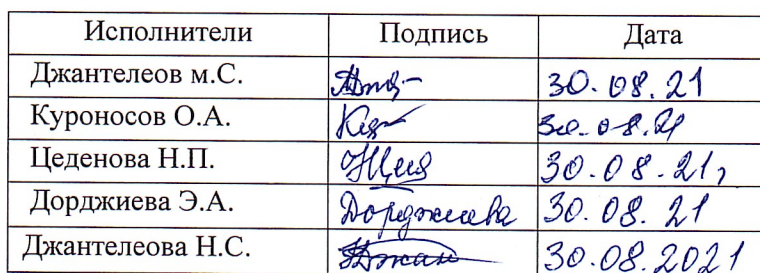 Исполнители Подпись Дата
Джантелеов м.С. 30.08.21
Куроносов О.А. 30.08.21
Цеденова Н.П. 30.08.21г
Дорджиева Э.А. Дорджиева 30.08.21
Джантелеова Н.С. 30.08.2021